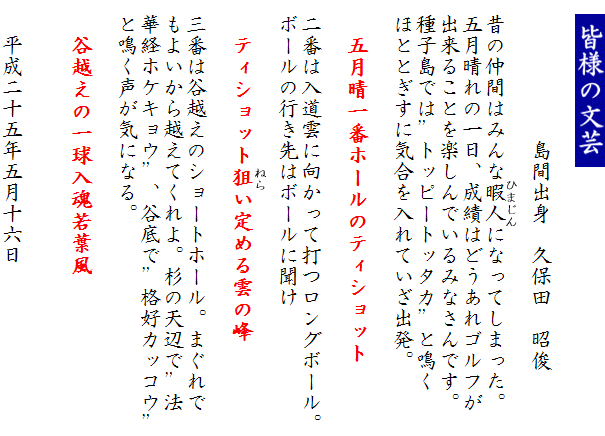 皆様の文芸
島間出身　久保田　昭俊
昔の仲間はみんな暇人になってしまった。
ひまじん
五月晴れの一日、成績はどうあれゴルフが
出来ることを楽しんでいるみなさんです。
種子島では”トッピートッタカ”と鳴く
ほととぎすに気合を入れていざ出発。
五月晴一番ホールのティショット
二番は入道雲に向かって打つロングボール。
ボールの行き先はボールに聞け
ティショット狙い定める雲の峰
ねら
三番は谷越えのショートホール。まぐれで
もよいから越えてくれよ。杉の天辺で”法
華経ホケキョウ”、谷底で”格好カッコウ”
と鳴く声が気になる。
谷越えの一球入魂若葉風
平成二十五年五月十六日